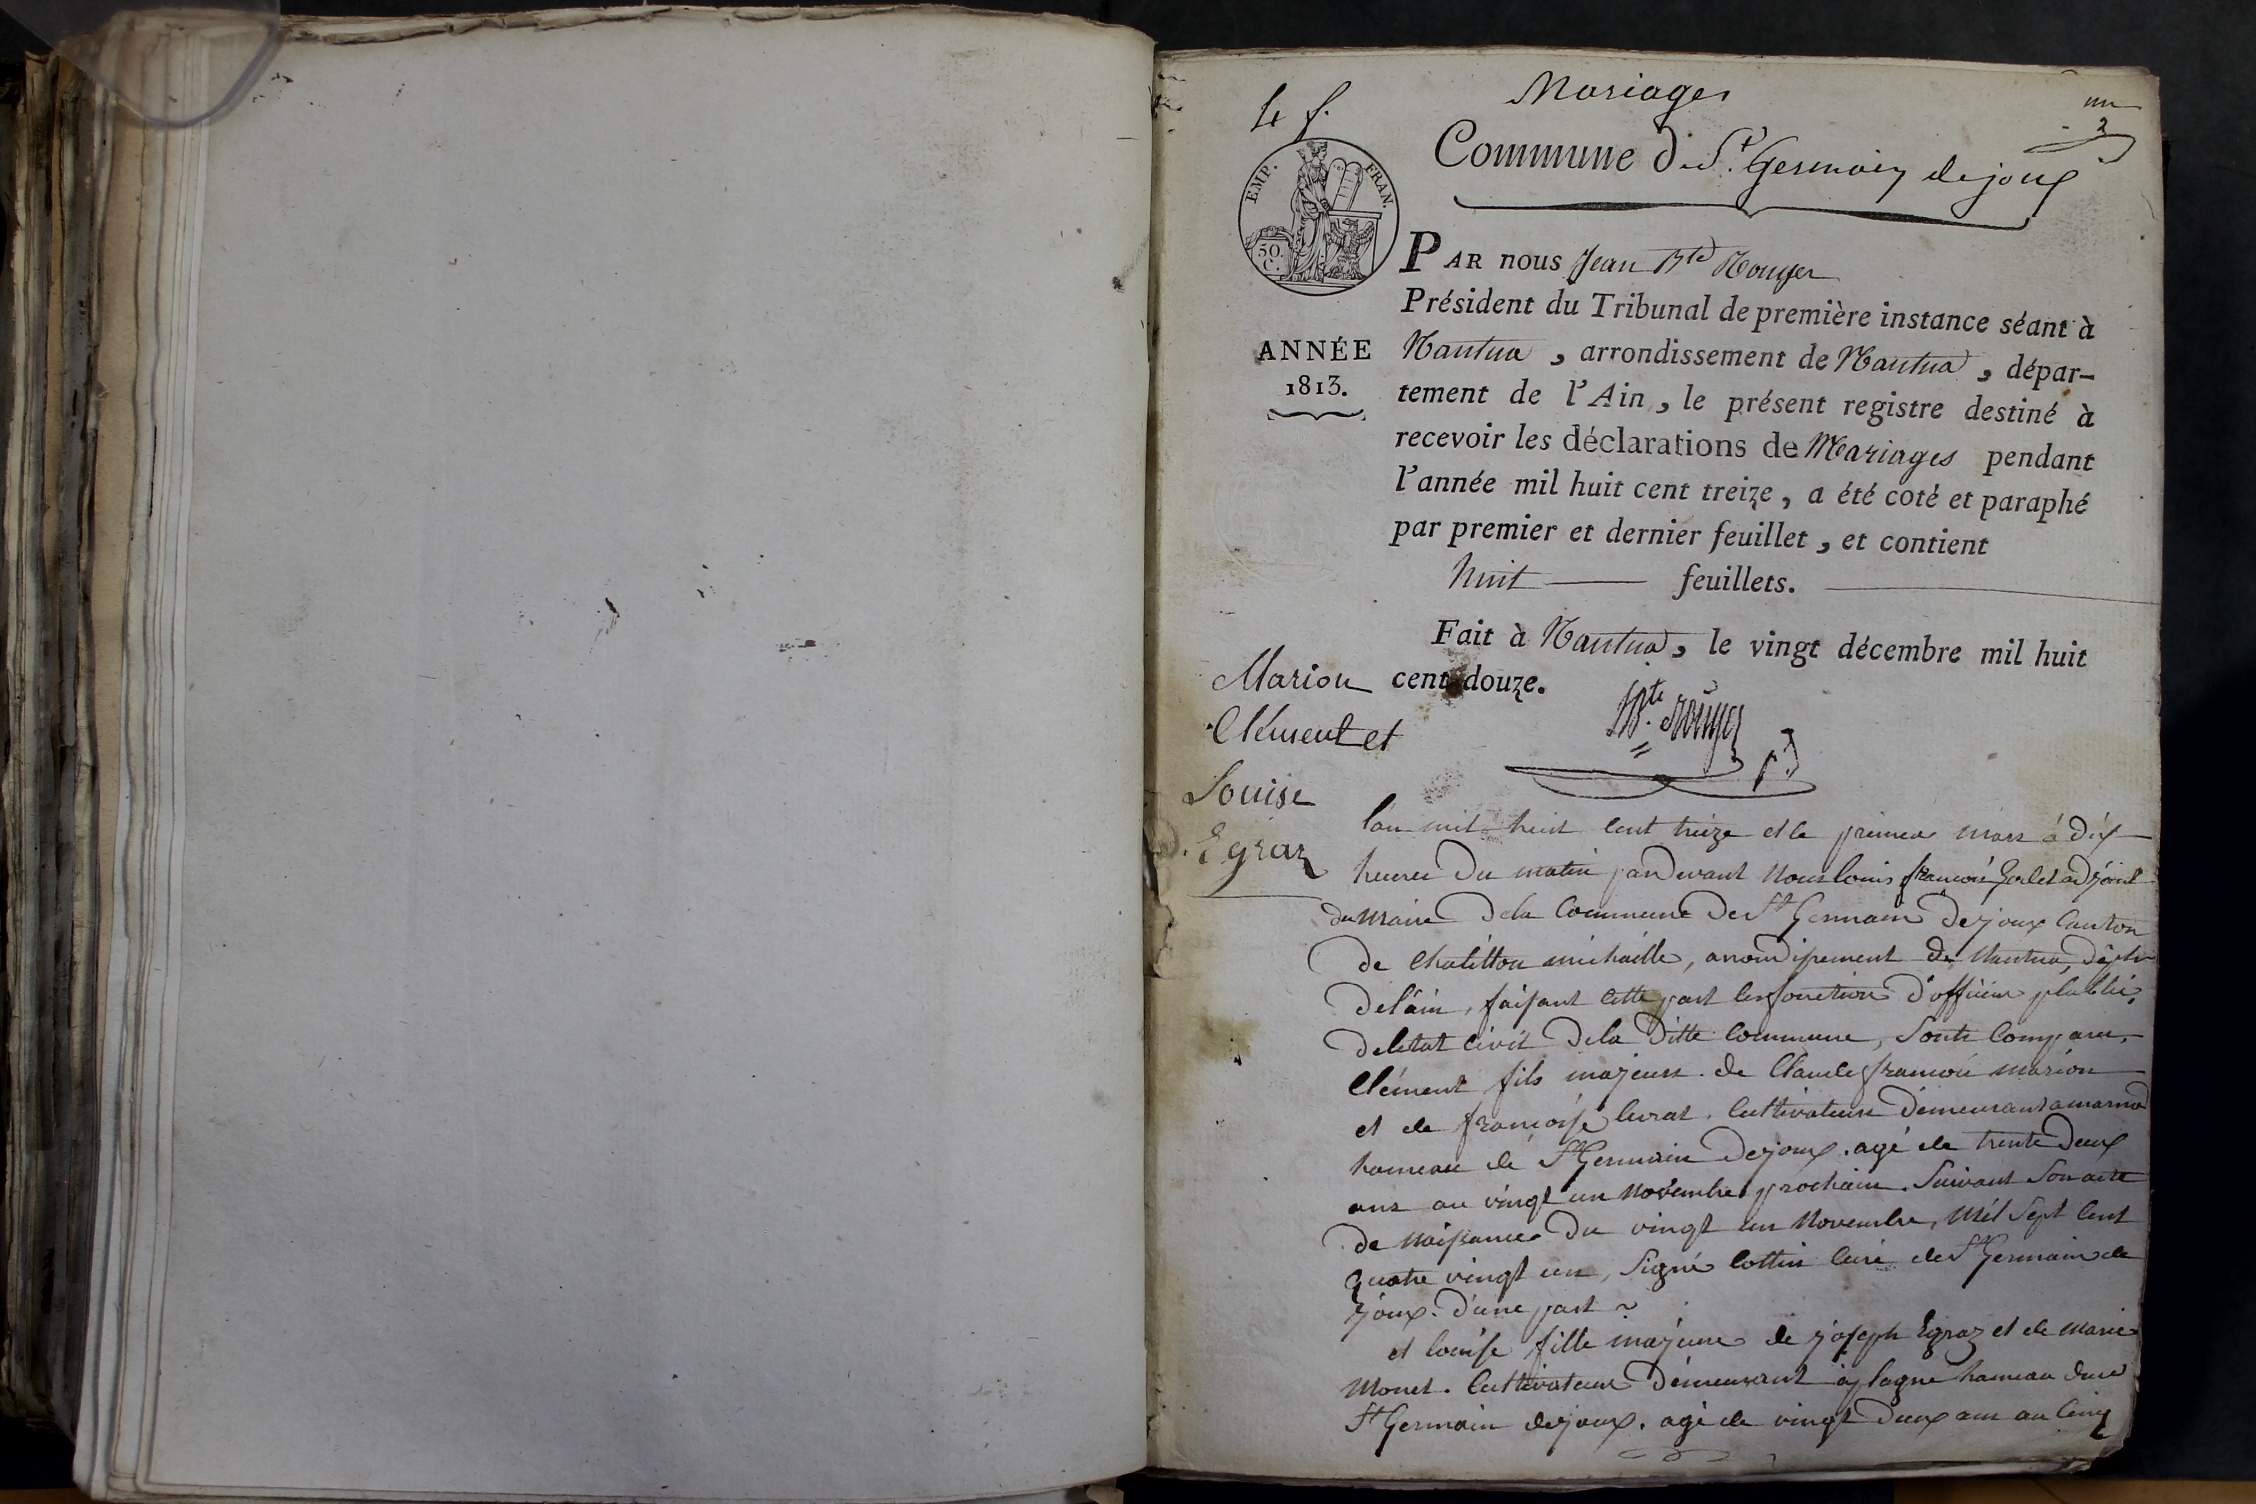 Mariages
4 f.
un
2
Commune de St. Germain de joux
EMP. FRAN.
50.
C.
PAR nous Jean Bte Rouyer
Président du Tribunal de première instance séant à
ANNÉE
1813.
Nantua, arrondissement de Nantua, dépar-
tement de l'Ain, le présent registre destiné à
recevoir les déclarations de Mariages pendant
l'année mil huit cent treize, a été coté et paraphé
par premier et dernier feuillet, et contient
huit feuillets.
Fait à Nantua, le vingt décembre mil huit
cent douze.
Bte. Rouyer pt
Marion
Clément et
Louise
Egraz
l'an mil huit cent treize et le premier mars à dix
heures du matin pardevant nous louis françois adjoint
du maire de la Commune de St Germain dejoux Canton
de Chatillon michaille, arrondissement de Nantua, dépt
de l'ain, faisant cette part les fonctions d'officier plublic,
deletat civil de la ditte commune, sont comparu,
Clément fils majeur de Claude françois marion
et de françoise livrat. Cultivateur démeurant a marnod
hameau de St Germain Dejoux. agé de trente deux
ans au vingt un novembre prochain. Suivant son acte
de naissance du vingt un Novembre, mil sept cent
quatre vingt un, signé Cottin Curé de St Germain de
joux. d'une part
et louise fille majeure de joseph Egraz et de marie
Monet. Cultivateur démeurant à plagne hameau dud
St Germain dejoux. agé de vingt deux ans au cinq